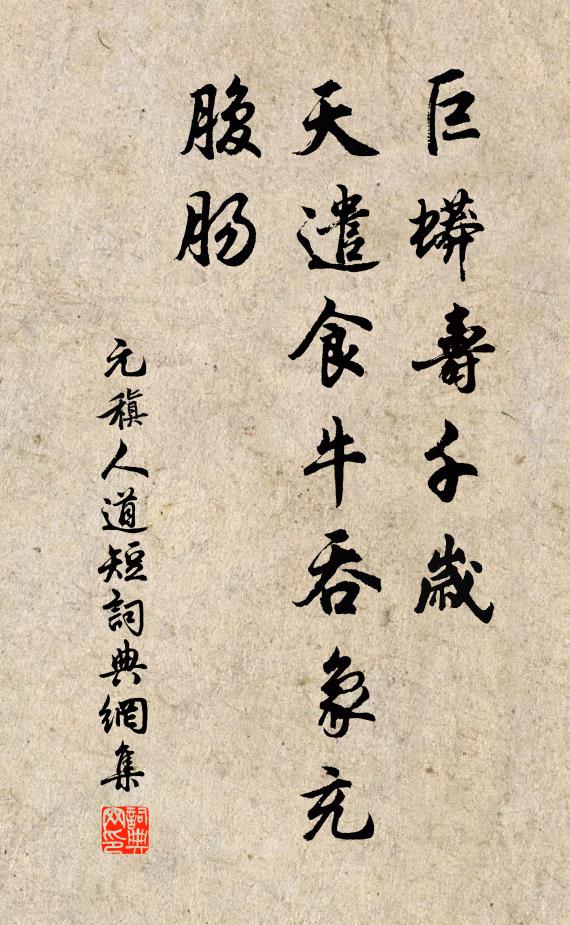 巨蟒壽千歲
天遣食牛吞象充
腹腸
元稹人道短詞典網集
詞典
网印